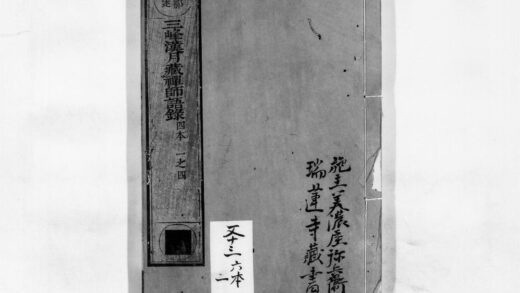 三峰漢月藏禪師語錄 四本 一之四
施主美濃屋弥兵衛
瑞蓮寺藏書
又十三 六本
二